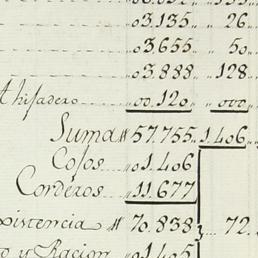 „03.135„ „26
„03655„ „50
„03.888„ „128
„00.120„ „000
Suma # 57.755„ 1.406
Cosos „01.406
Corderos 11.677
xistencia # 70.838„ 72
y Racion „01.405